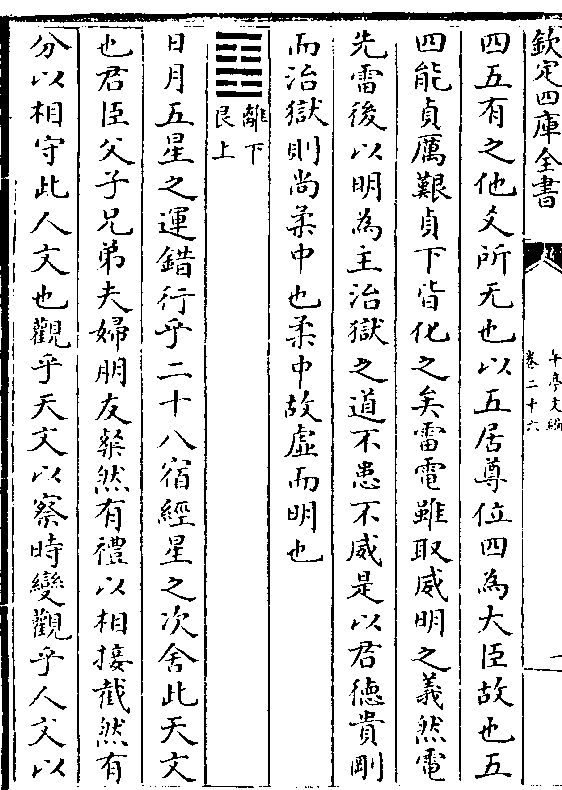 欽定四庫全書
卷二十六
四五有之他爻所无也以五居尊位四為大臣故也五
四能貞厲艱貞下皆化之矣雷電雖取威明之義然電
先雷後以明為主治獄之道不患不威是以君德貴剛
而治獄則尚柔中也柔中故虛而明也
離下
艮上
日月五星之運錯行乎二十八宿經星之次舍此天文
也君臣父子兄弟夫婦朋友粲然有禮以相接截然有
分以相守此人文也觀乎天文以察時變觀乎人文以